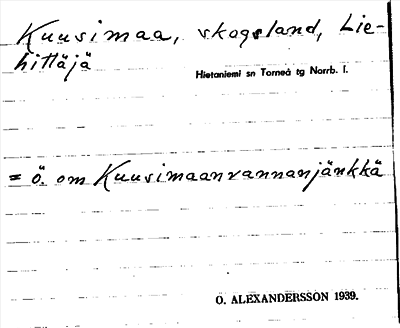 Kuusimaa, skogsland, Lie-
hittäjä
Hietaniemi sn Torneå tg Norrb. l.
= ö. om Kuusimaanrannanjänkkä
O. ALEXANDERSSON 1939.